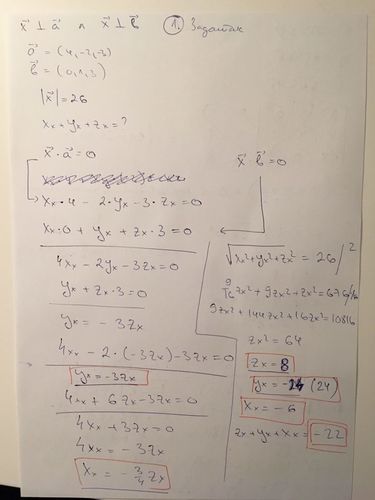 x⃗ ⊥ a⃗ ∧ x⃗ ⊥ b⃗ 1. Задатак
a⃗ = (4,-2,-3)
b⃗ = (0,1,3)
|x⃗| = 26
Xx + yx + zx = ?
x⃗ · a⃗ = 0
Xx · 4 - 2 · yx - 3 · zx = 0
Xx · 0 + yx + zx · 3 = 0
4Xx - 2yx - 3zx = 0
yx + zx · 3 = 0
yx = - 3zx
4Xx - 2 · (-3zx) - 3zx = 0
yx = -3zx
4Xx + 6zx - 3zx = 0
4Xx + 3zx = 0
4Xx = - 3zx
Xx = - 3/4 zx
x⃗ · b⃗ = 0
√xx² + yx² + zx² = 26 /²
9/16 zx² + 9zx² + zx² = 676 /·16
9zx² + 144zx² + 16zx² = 10816
zx² = 64
zx = 8
(24)
Xx = - 6
zx + yx + Xx = -22